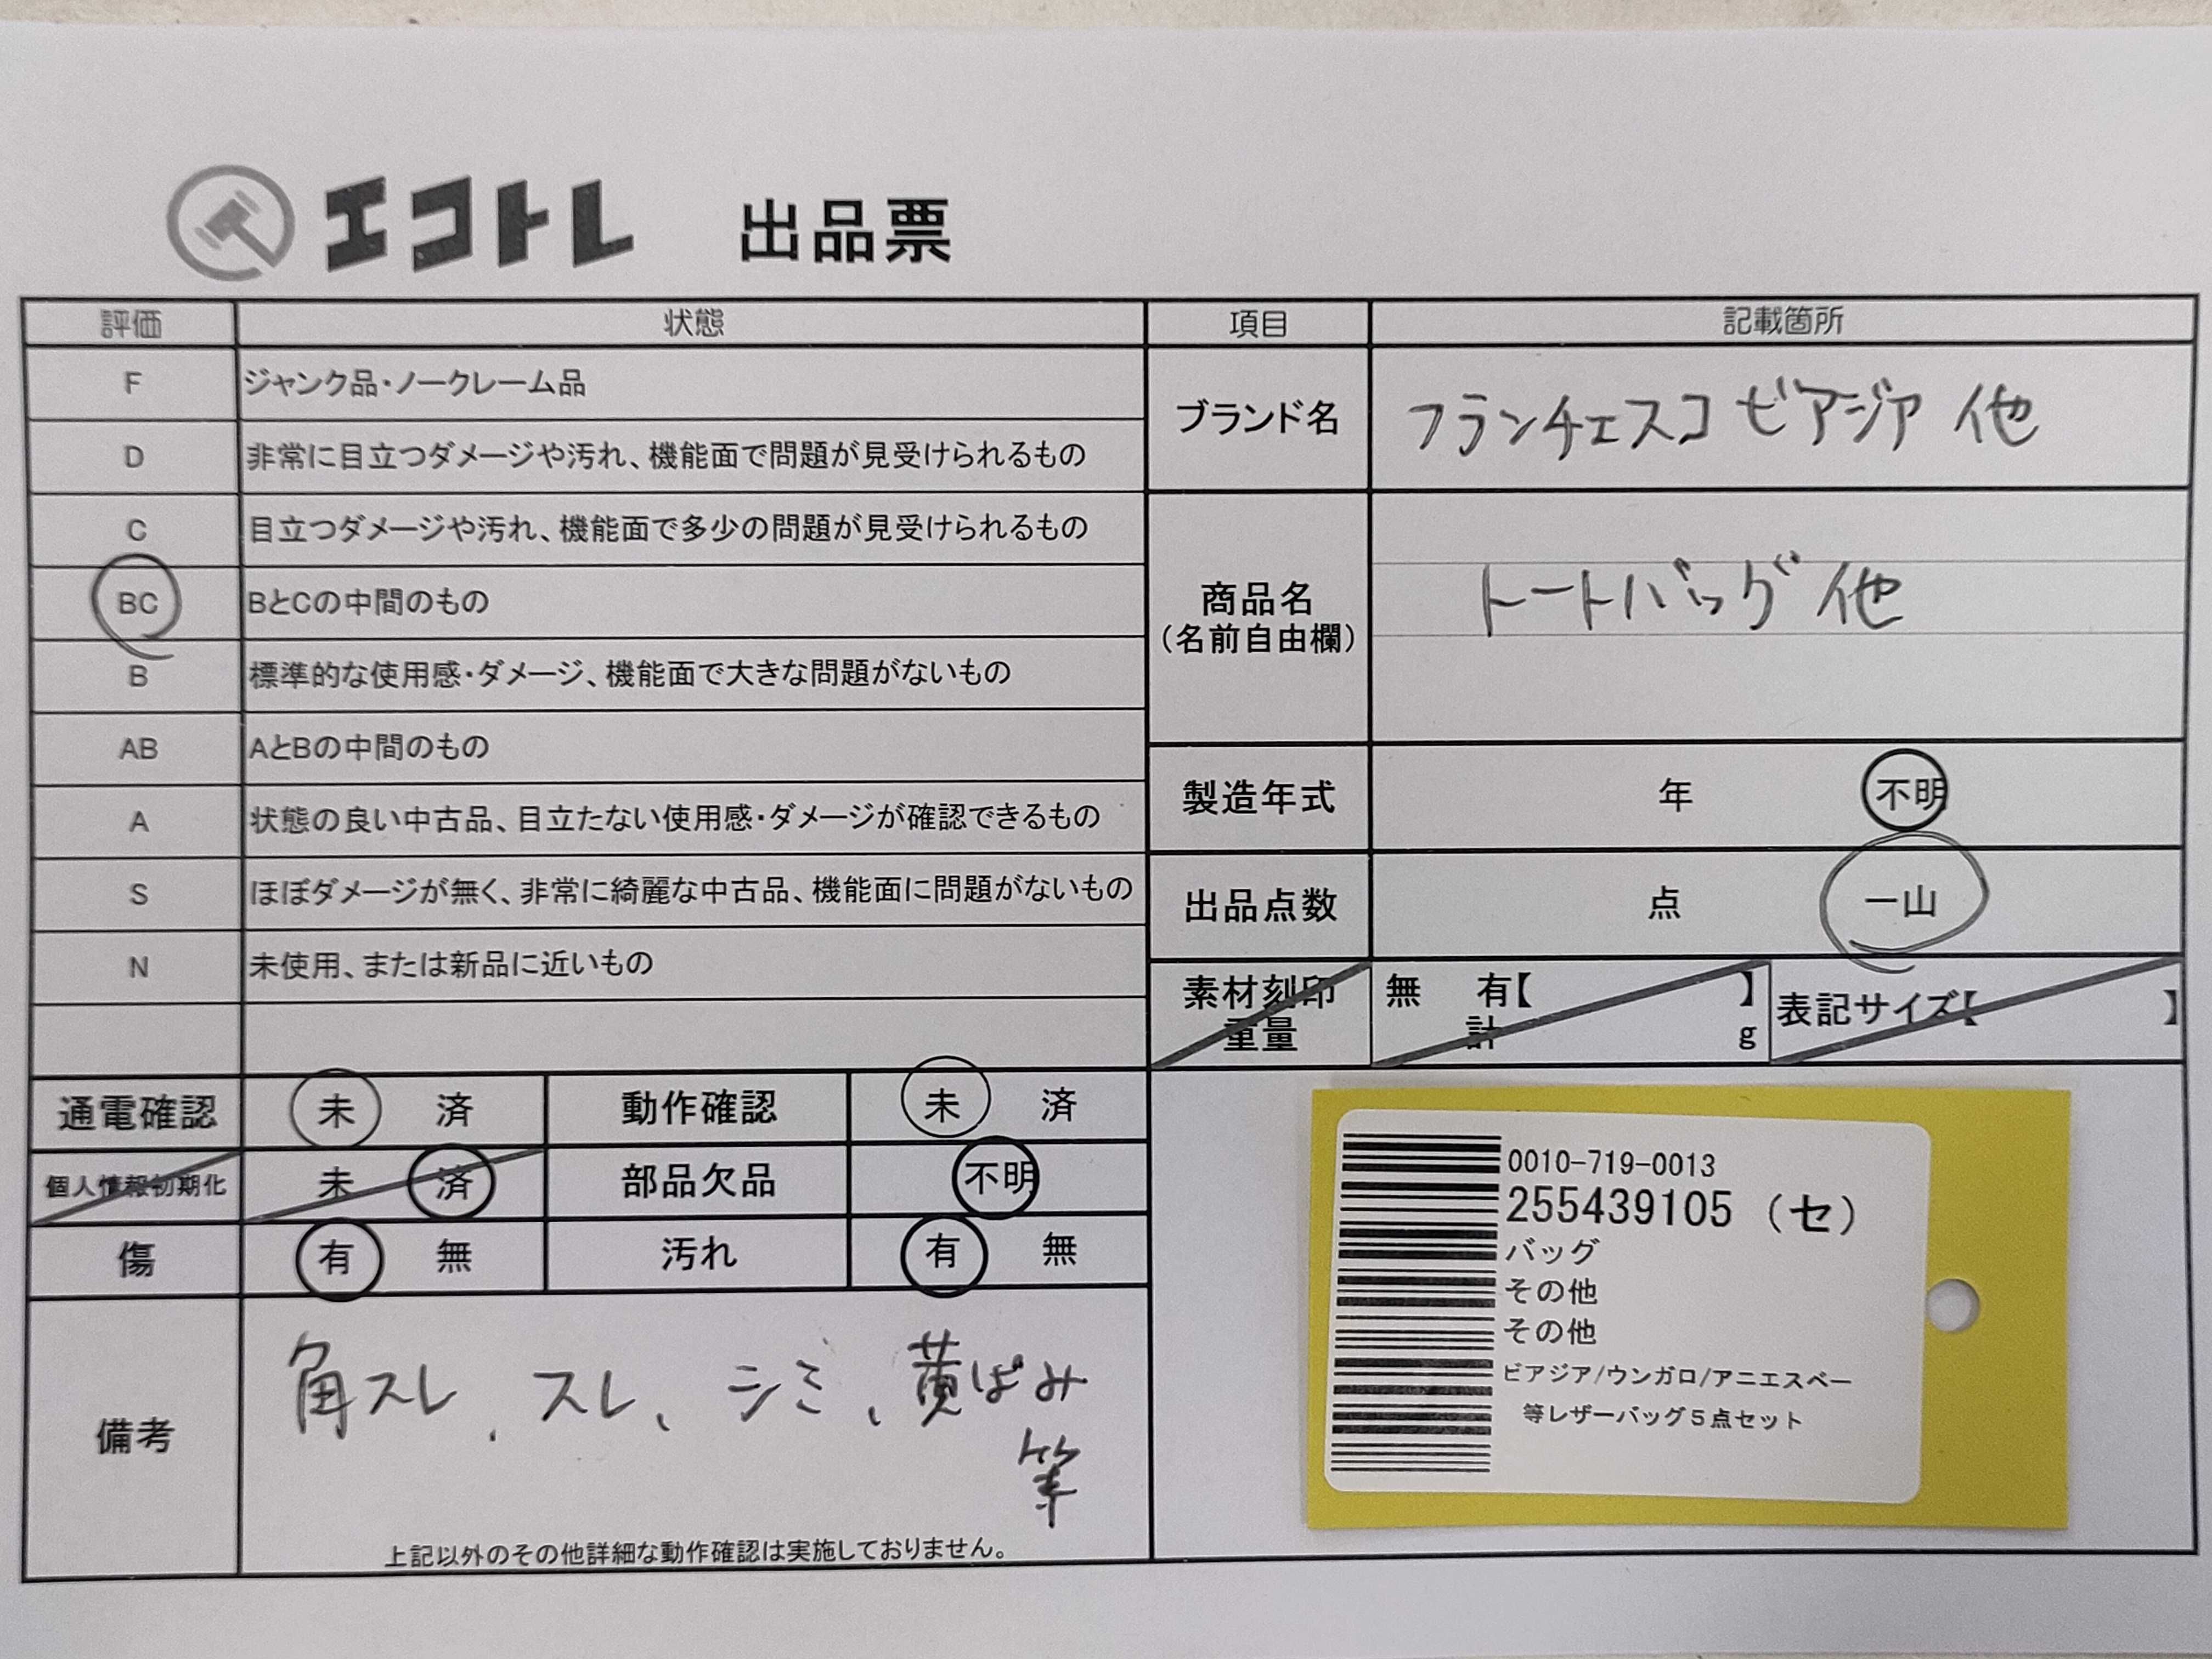 エコトレ 出品票
評価 状態 項目 記載箇所
F ジャンク品・ノークレーム品
D 非常に目立つダメージや汚れ、機能面で問題が見受けられるもの
C 目立つダメージや汚れ、機能面で多少の問題が見受けられるもの
BC BとCの中間のもの
B 標準的な使用感・ダメージ、機能面で大きな問題がないもの
AB AとBの中間のもの
A 状態の良い中古品、目立たない使用感・ダメージが確認できるもの
S ほぼダメージが無く、非常に綺麗な中古品、機能面に問題がないもの
N 未使用、または新品に近いもの
ブランド名 フランチェスコ ビアジア 他
商品名
(名前自由欄)
トートバッグ 他
製造年式 年 不明
出品点数 点 一山
素材刻印 無 有【 】 表記サイズ【 】
重量 計 g
通電確認 未 済 動作確認 未 済
個人情報初期化 未 済 部品欠品 不明
傷 有 無 汚れ 有 無
備考
角スレ、スレ、シミ、黄ばみ
等
上記以外のその他詳細な動作確認は実施しておりません。
0010-719-0013
255439105 (セ)
バッグ
その他
その他
ビアジア/ウンガロ/アニエスベー
等レザーバッグ5点セット